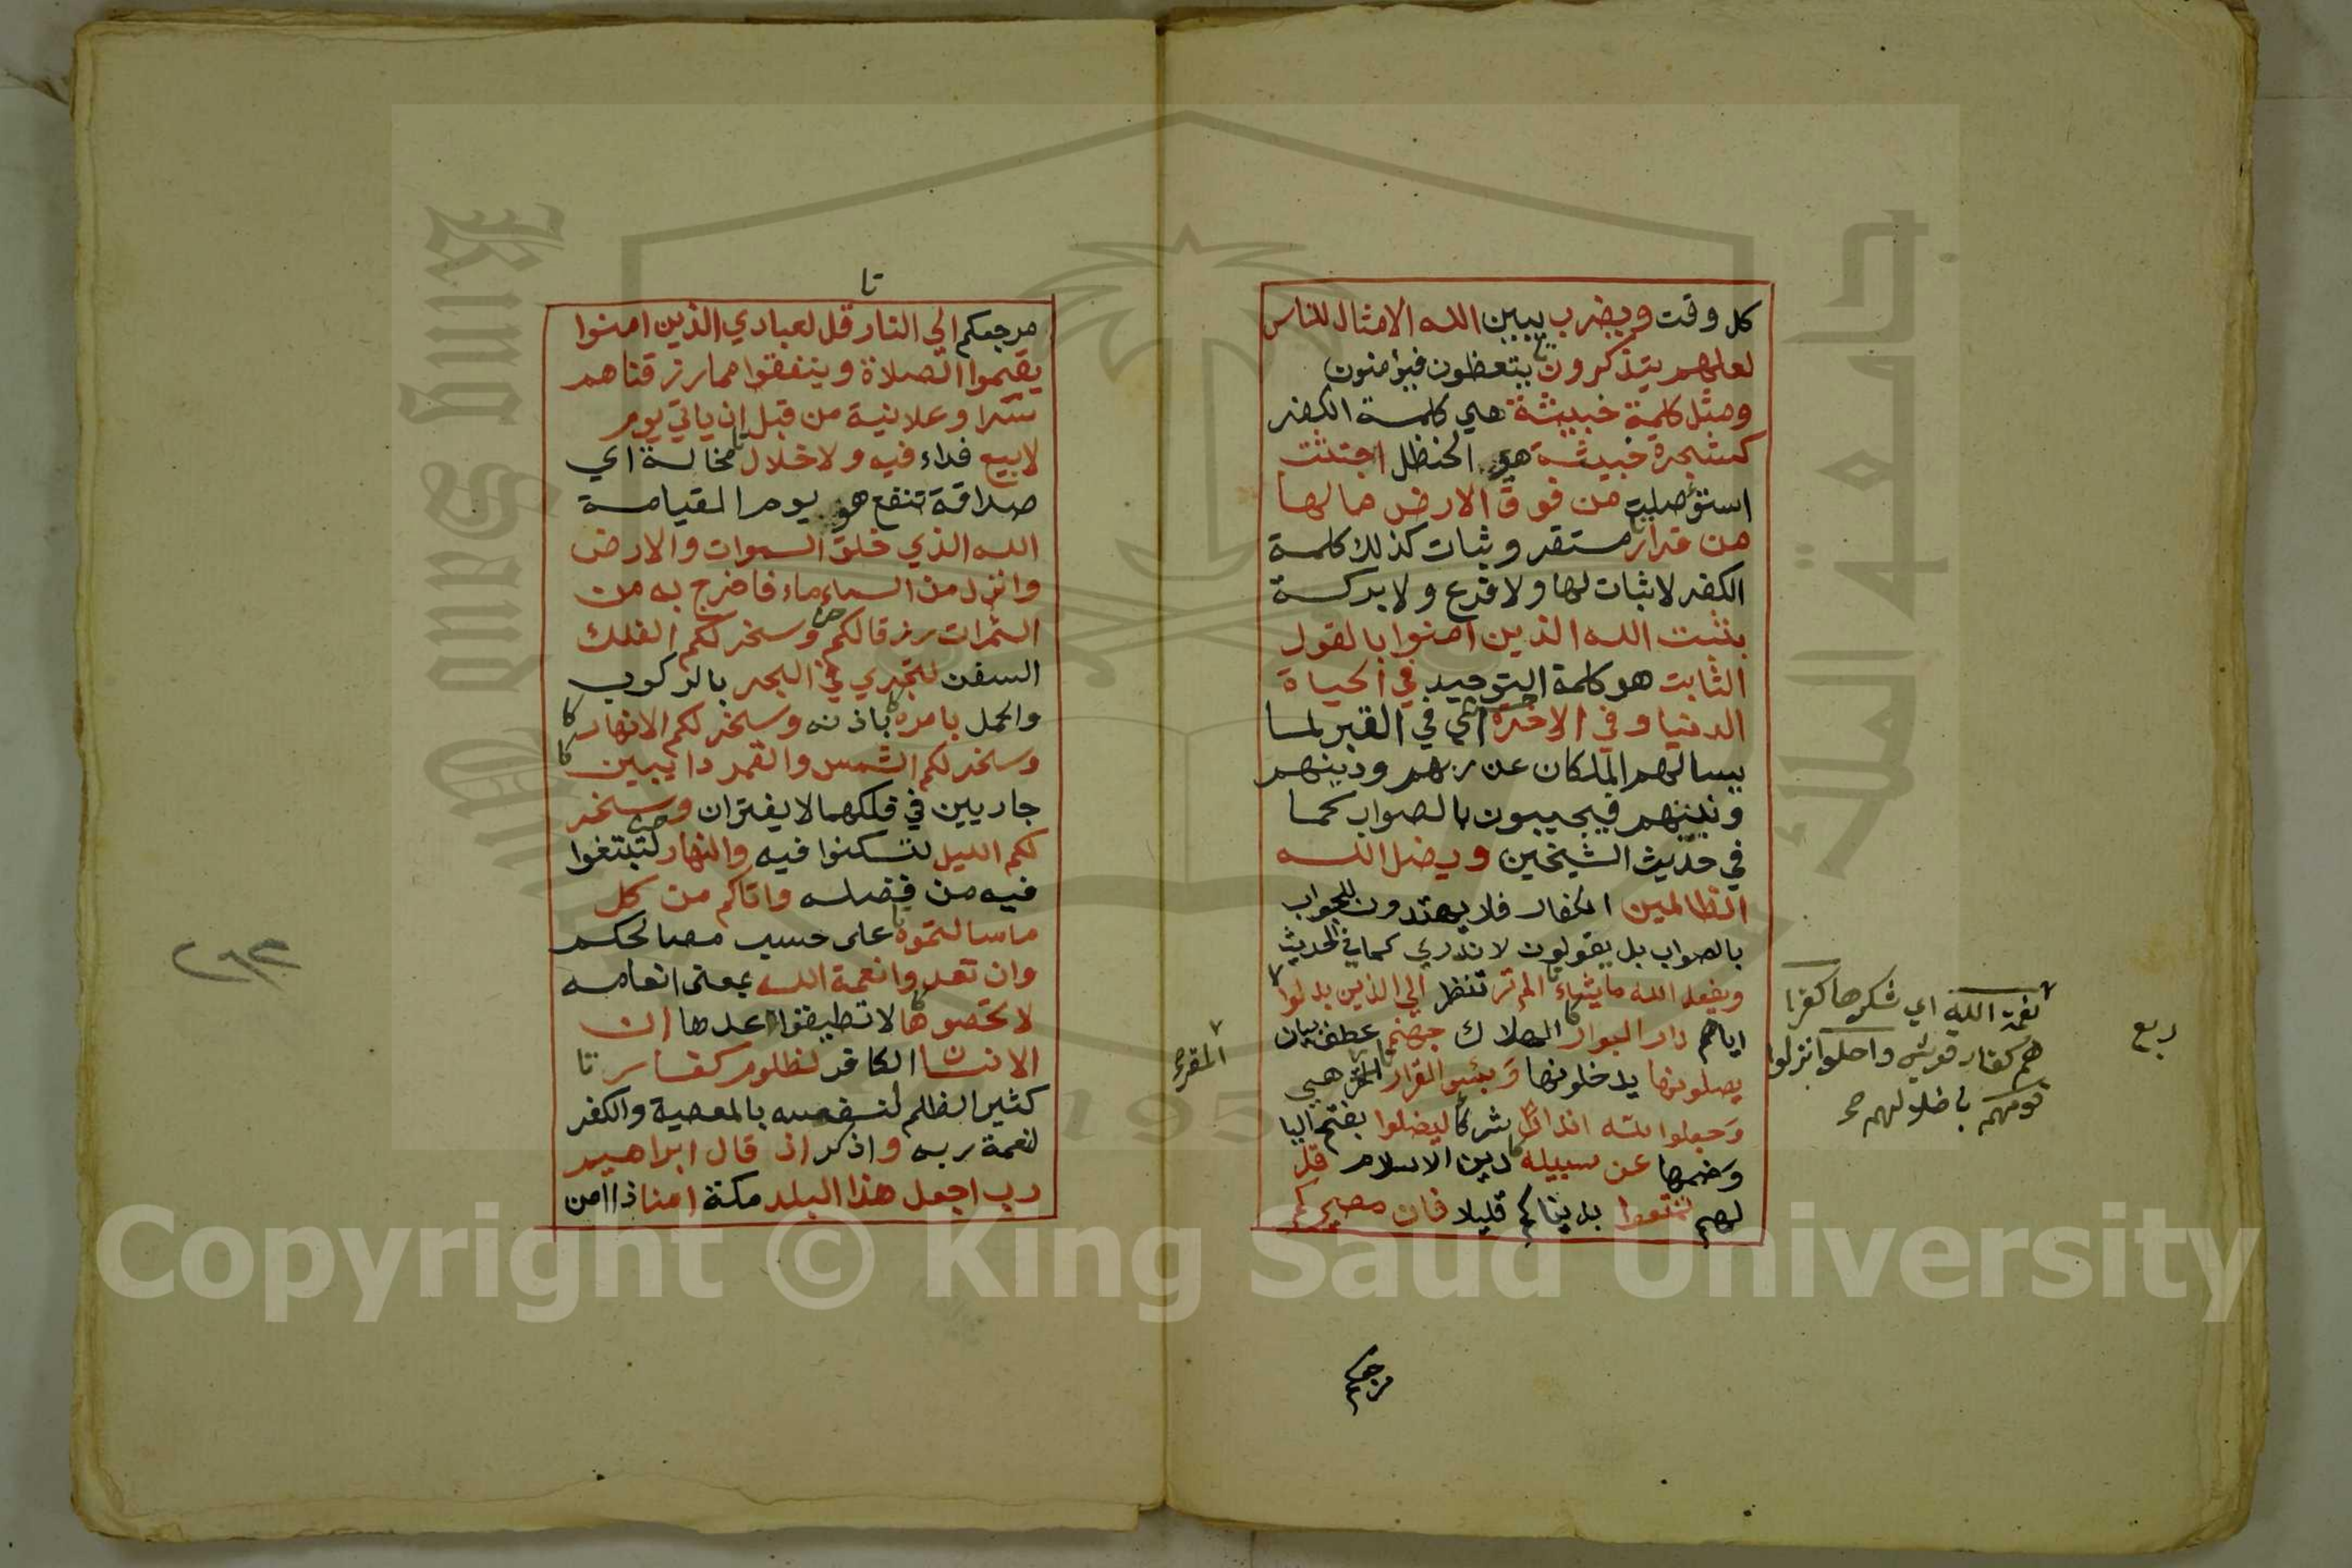 كل وقت ويضرب يبين الله الامثال للناس
لعلهم يتذكرون يتعظون فيؤمنون
ومثل كلمة خبيثة هي كلمة الكفر
كشجرة خبيثة هي الحنظل اجتثت
استؤصلت من فوق الارض مالها
من قرار مستقر وثبات كذلك كلمة
الكفر لاثبات لها ولا فرع ولا بركة
يثبت الله الذين امنوا بالقول
الثابت هو كلمة التوحيد في الحياة
الدنيا وفي الاخرة اي في القبر لما
يسالهم الملكان عن ربهم ودينهم
ونبيهم فيجيبون بالصواب كما
في حديث الشيخين ويضل الله
الظالمين الكفار فلا يهتدون للجواب
بالصواب بل يقولون لا ندري كما في الحديث
ويفعل الله ما يشاء الم تر تنظر الي الذين بدلوا
اياهم دار البوار الهلاك جهنم عطف بيان
يصلونها يدخلونها وبئس القرار هي
وجعلوا لله اندادا شركا ليضلوا بفتح اليا
وضمها عن سبيله دين الاسلام قل
لهم تمتعوا بدنياكم قليلا فان مصيركم
نعمة الله اي شكرها كفرا
هم كفار قريش واحلوا انزلوا
قومهم باضلالهم صح
ربع
المقر
مرجعكم
تا
مرجعكم الي النار قل لعبادي الذين امنوا
يقيموا الصلاة وينفقوا مما رزقناهم
سرا وعلانية من قبل ان ياتي يوم
لابيع فداء فيه ولا خلال مخالة اي
صداقة تنفع هو يوم القيامة
الله الذي خلق السموات والارض
وانزل من السماء ماء فاخرج به من
الثمرات رزقا لكم وسخر لكم الفلك
السفن لتجري في البحر بالركوب
والحمل بامره باذنه وسخر لكم الانهار
وسخر لكم الشمس والقمر دايبين
جاريين في فلكهما لا يفتران وسخر
لكم الليل لتسكنوا فيه والنهار لتبتغوا
فيه من فضله واتاكم من كل
ما سالتموه على حسب مصالحكم
وان تعدوا نعمة الله بمعنى انعامه
لا تحصوها لا تطيقوا عدها ان
الانسان الكافر لظلوم كفار
كثير الظلم لنفسه بالمعصية والكفر
لنعمة ربه واذكر اذ قال ابراهيم
رب اجعل هذا البلد مكة امنا ذا امن
٢٦٣
King Saud University
جامعة الملك
195
Copyright © King Saud University